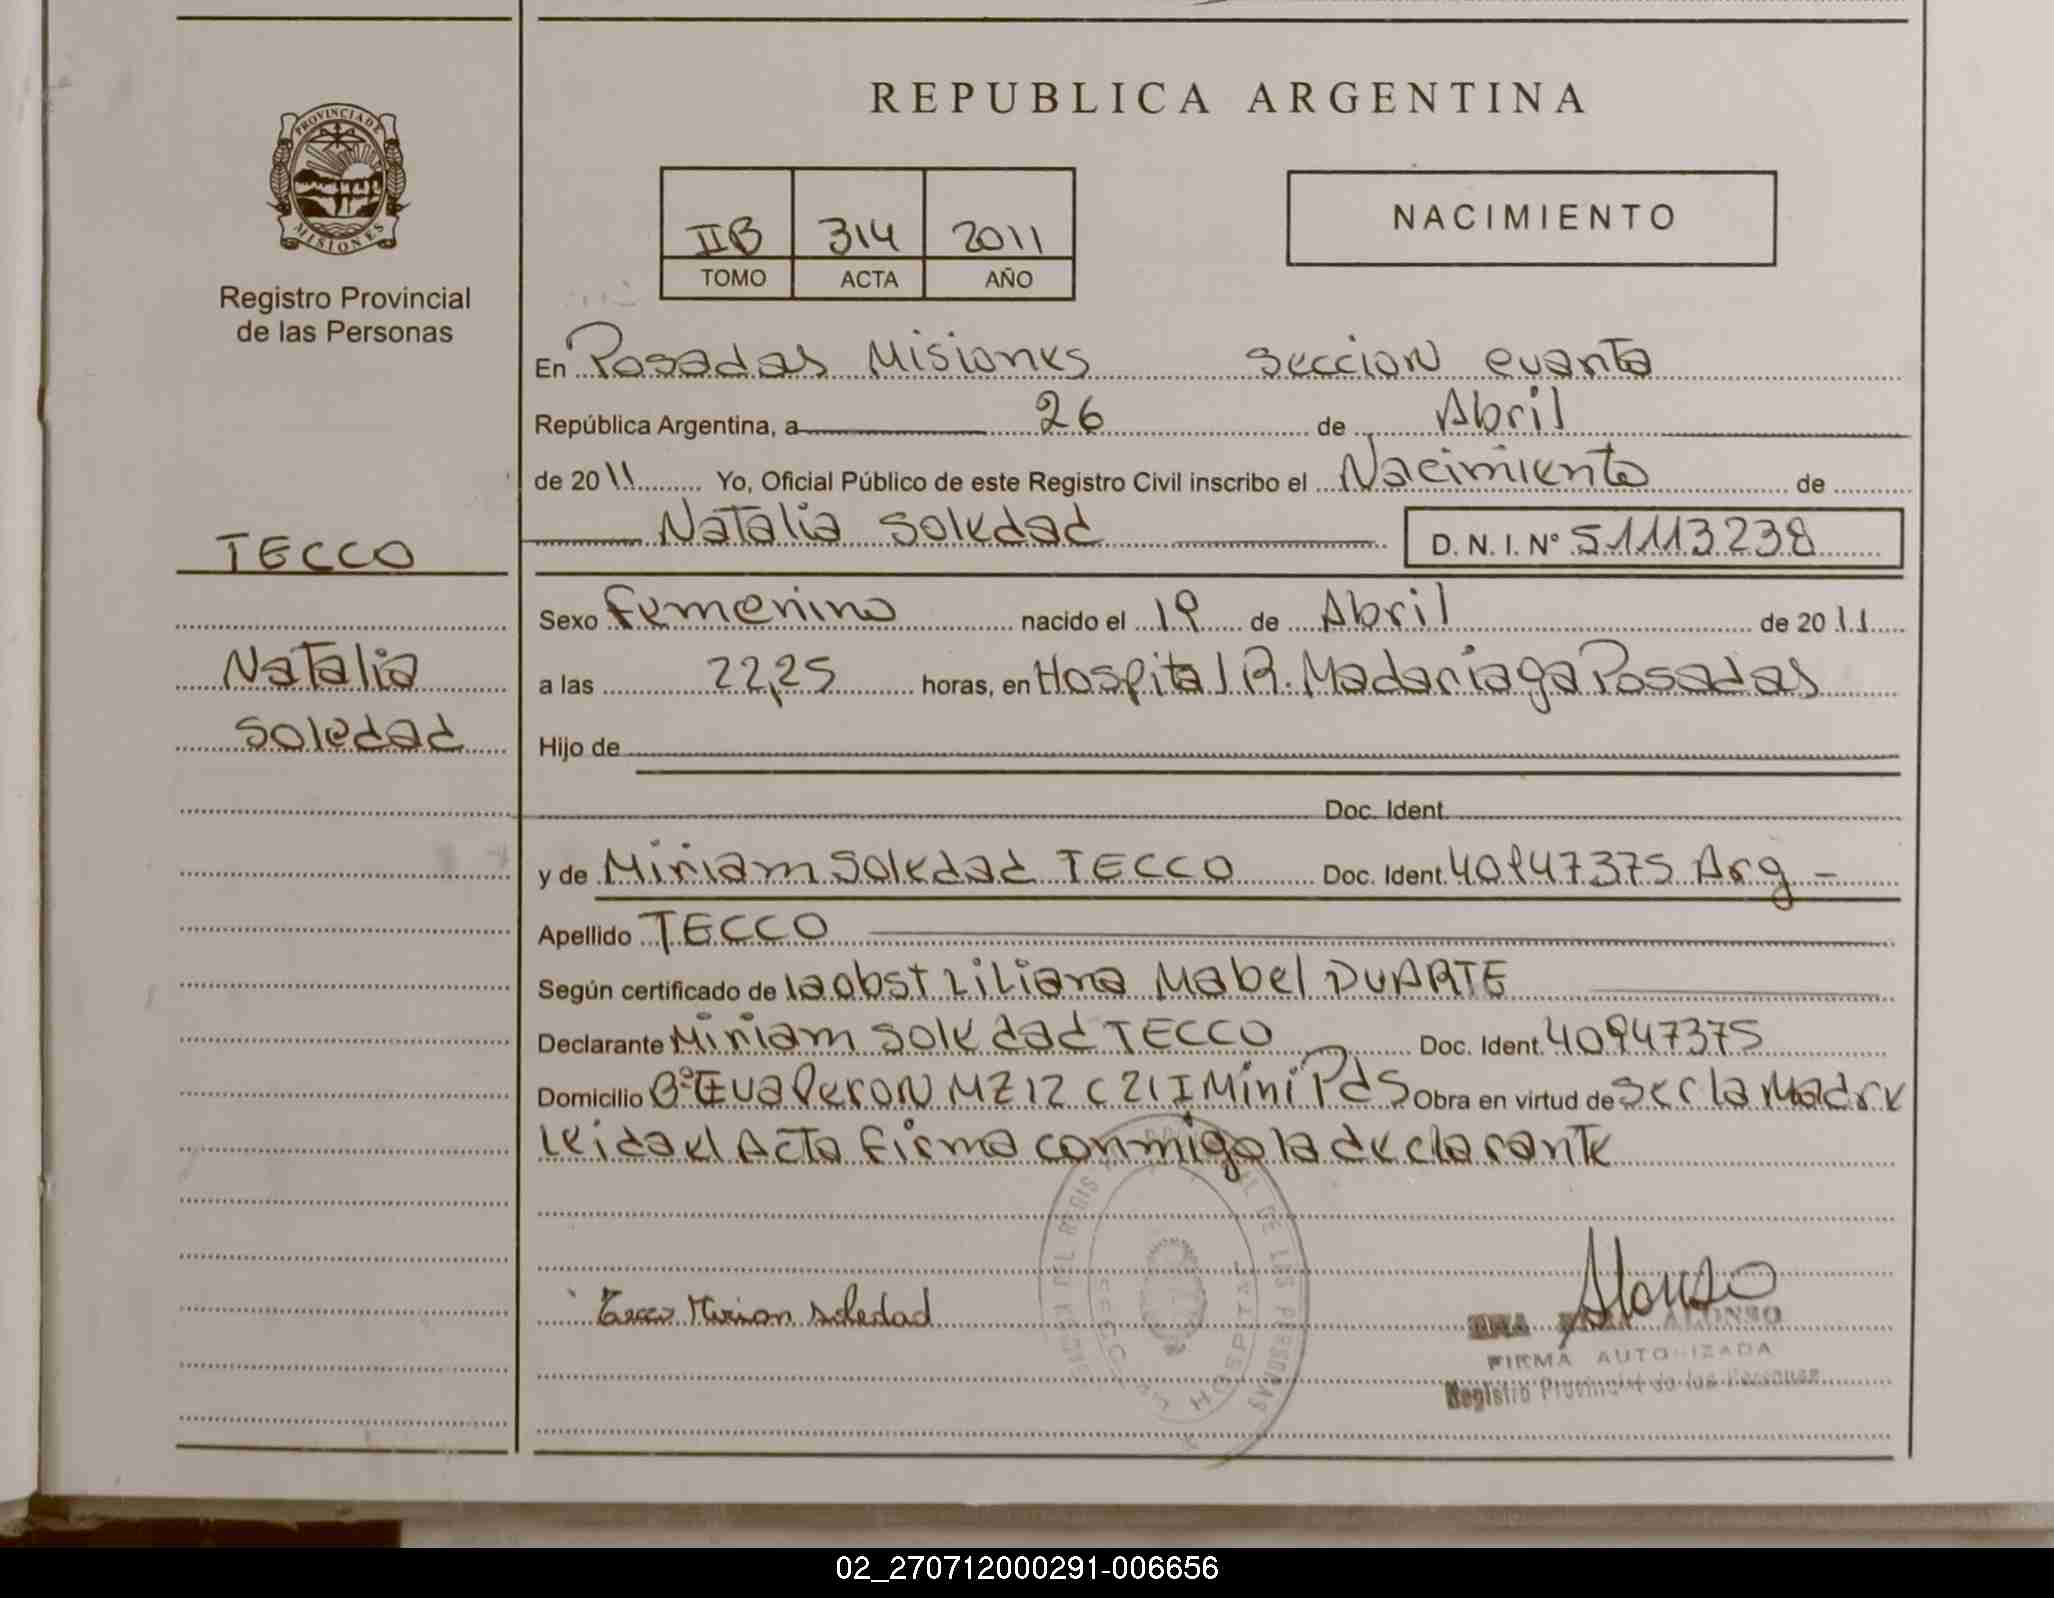 REPUBLICA ARGENTINA
PROVINCIA DE
MISIONES
Registro Provincial
de las Personas
IIB 314 2011
TOMO ACTA AÑO
NACIMIENTO
En Posadas Misiones seccion cuarta
República Argentina, a 26 de Abril
de 2011 Yo, Oficial Público de este Registro Civil inscribo el Nacimiento de
Natalia Soledad D. N. I. Nº 51113238
TECCO
Natalia
Soledad
Sexo Femenino nacido el 19 de Abril de 2011
a las 22,25 horas, en Hospital R. Madariaga Posadas
Hijo de
Doc. Ident.
y de Miriam Soledad TECCO Doc. Ident. 40947375 Arg -
Apellido TECCO
Según certificado de la obst Liliana Mabel DUARTE
Declarante Miriam Soledad TECCO Doc. Ident. 40947375
Domicilio Bº Eva Peron MZ 12 C 21 I Mini Pds Obra en virtud de ser la Madre
leida el Acta firma conmigo la declarante
Tecco Mirian soledad
Alonso
ALONSO
FIRMA AUTORIZADA
Registro Provincial de las Personas
HOSPITAL
02_270712000291-006656